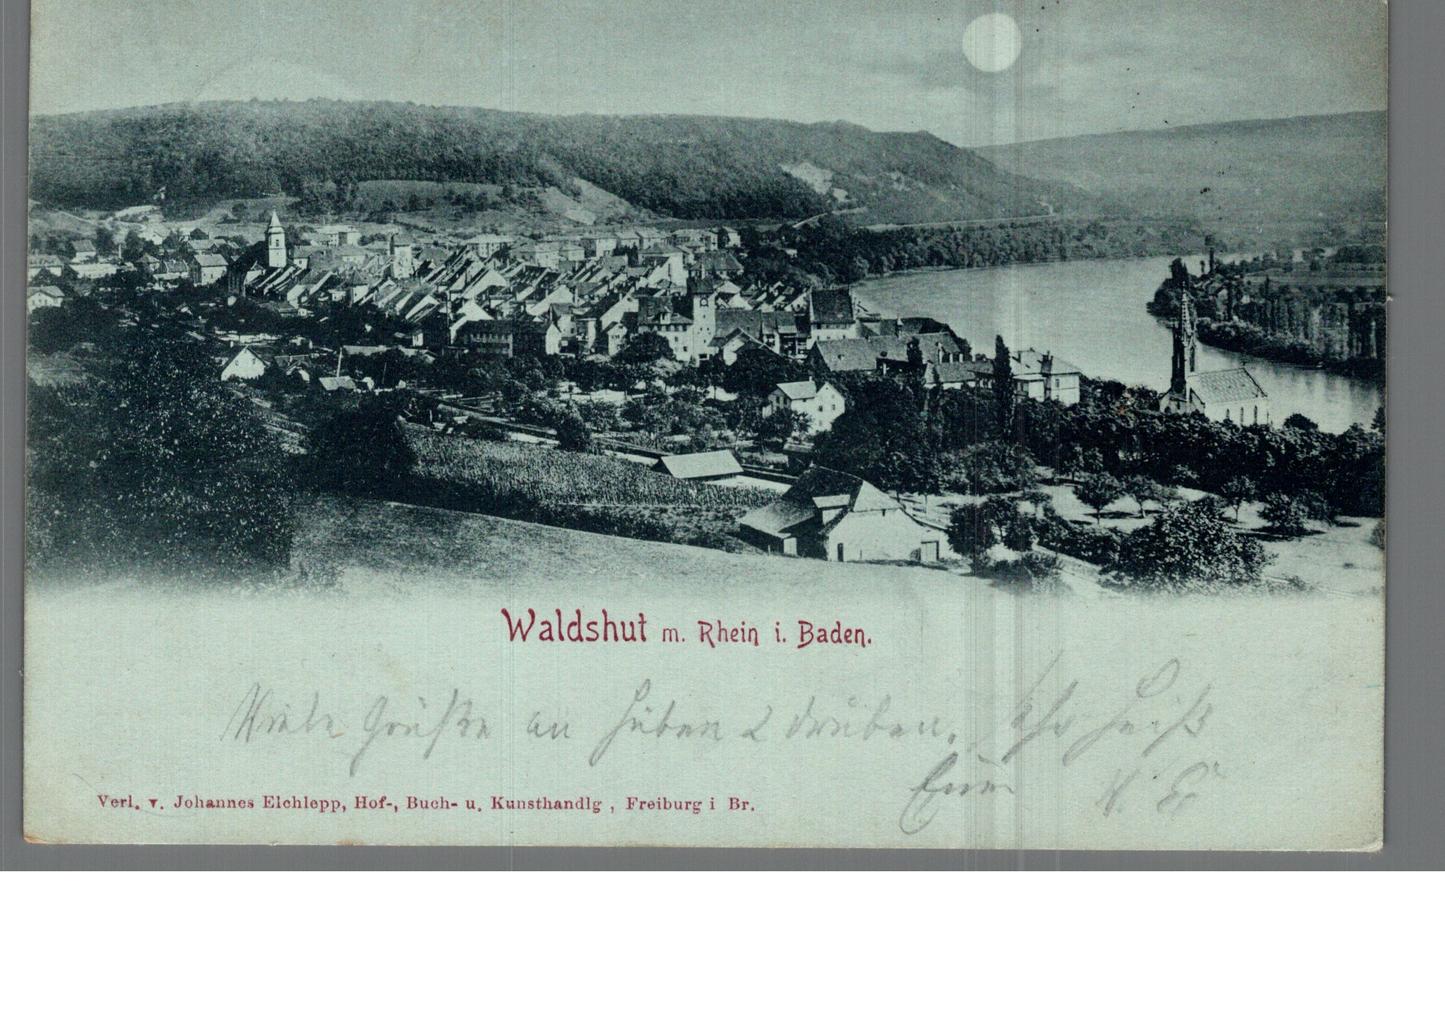 Waldshut m. Rhein i. Baden.
Viele Grüße an hüben & drüben. Ihr heiß
Euer
Verl. v. Johannes Elchlepp, Hof-, Buch- u. Kunsthandlg , Freiburg i Br.